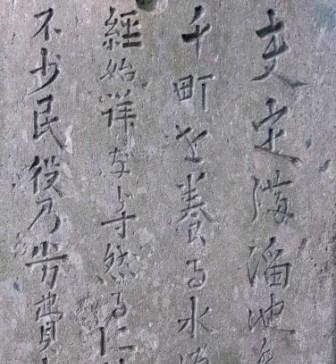 夫定溜池
千町を養る水
經始詳なら寸然るに
不少民役乃労費